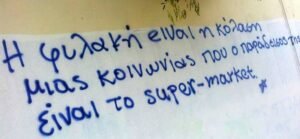 Η φυλακή είναι η κόλαση
μιας κοινωνίας που ο παράδεισος της
είναι το super-market.